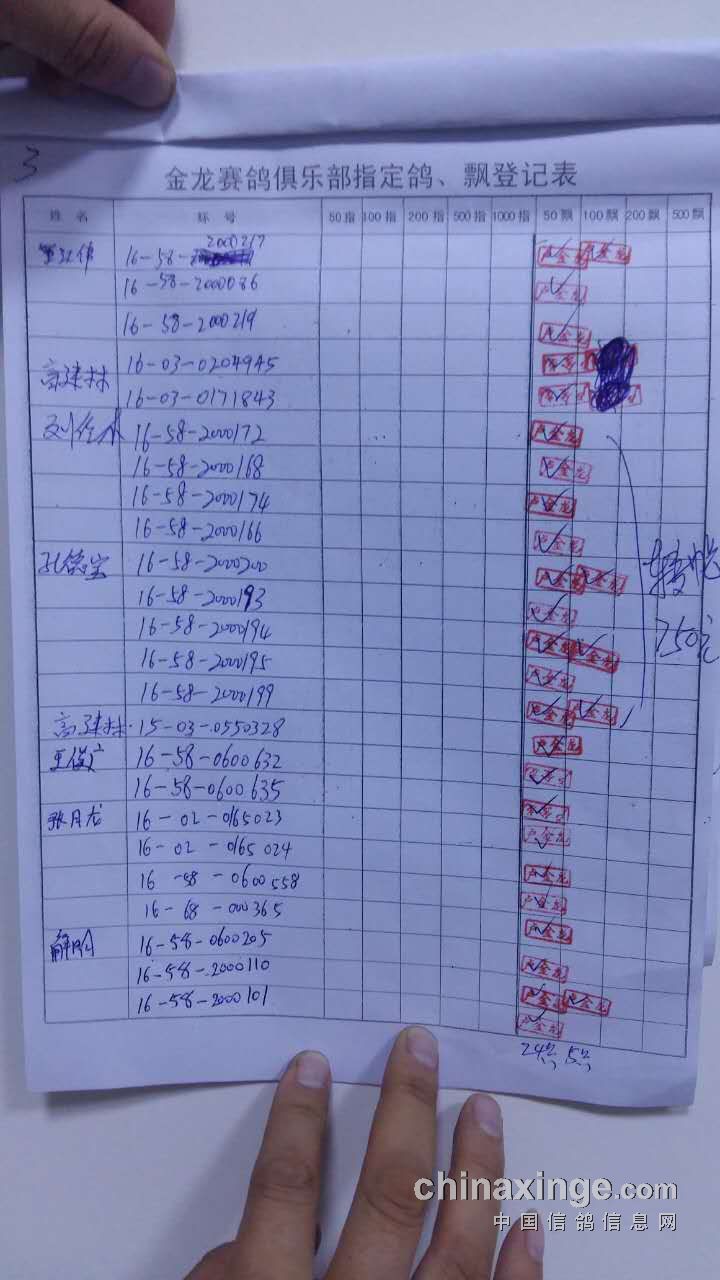 3
金龙赛鸽俱乐部指定鸽、飘登记表
姓 名 环 号 50指 100指 200指 500指 1000指 50飘 100飘 200飘 500飘
16-58- 2000217
16-58-2000086
16-58-2000219
高建林 16-03-0204945
16-03-0171843
16-58-2000172
16-58-2000168
16-58-2000174
16-58-2000166
16-58-2000200
16-58-2000193
16-58-2000194
16-58-2000195
16-58-2000199
高建林 15-03-0550328
16-58-0600632
16-58-0600635
张月龙 16-02-0165023
16-02-0165024
16-58-0600558
16-68-000365
16-58-0600205
16-58-2000110
16-58-2000101
750元
chinaxinge.com
中国信鸽信息网